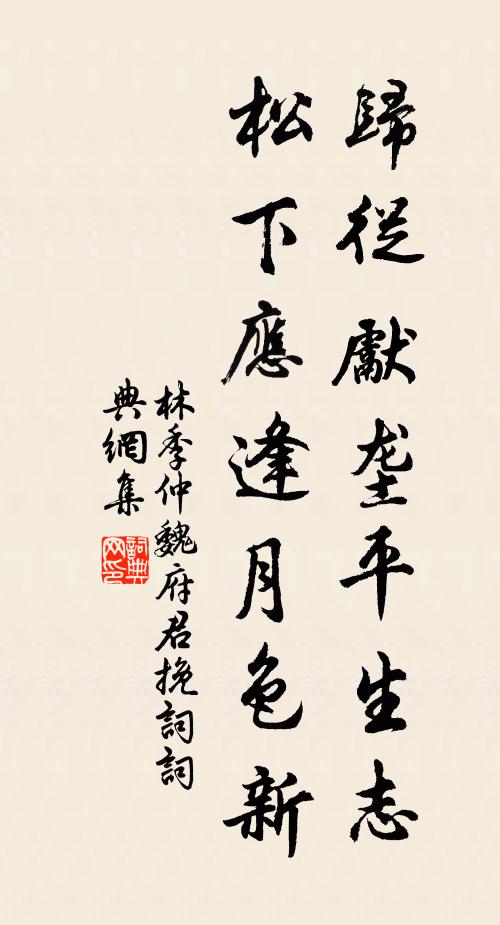 歸從獻垄平生志
松下應逢月色新
林季仲魏府君挽詞詞
典網集
詞典网印